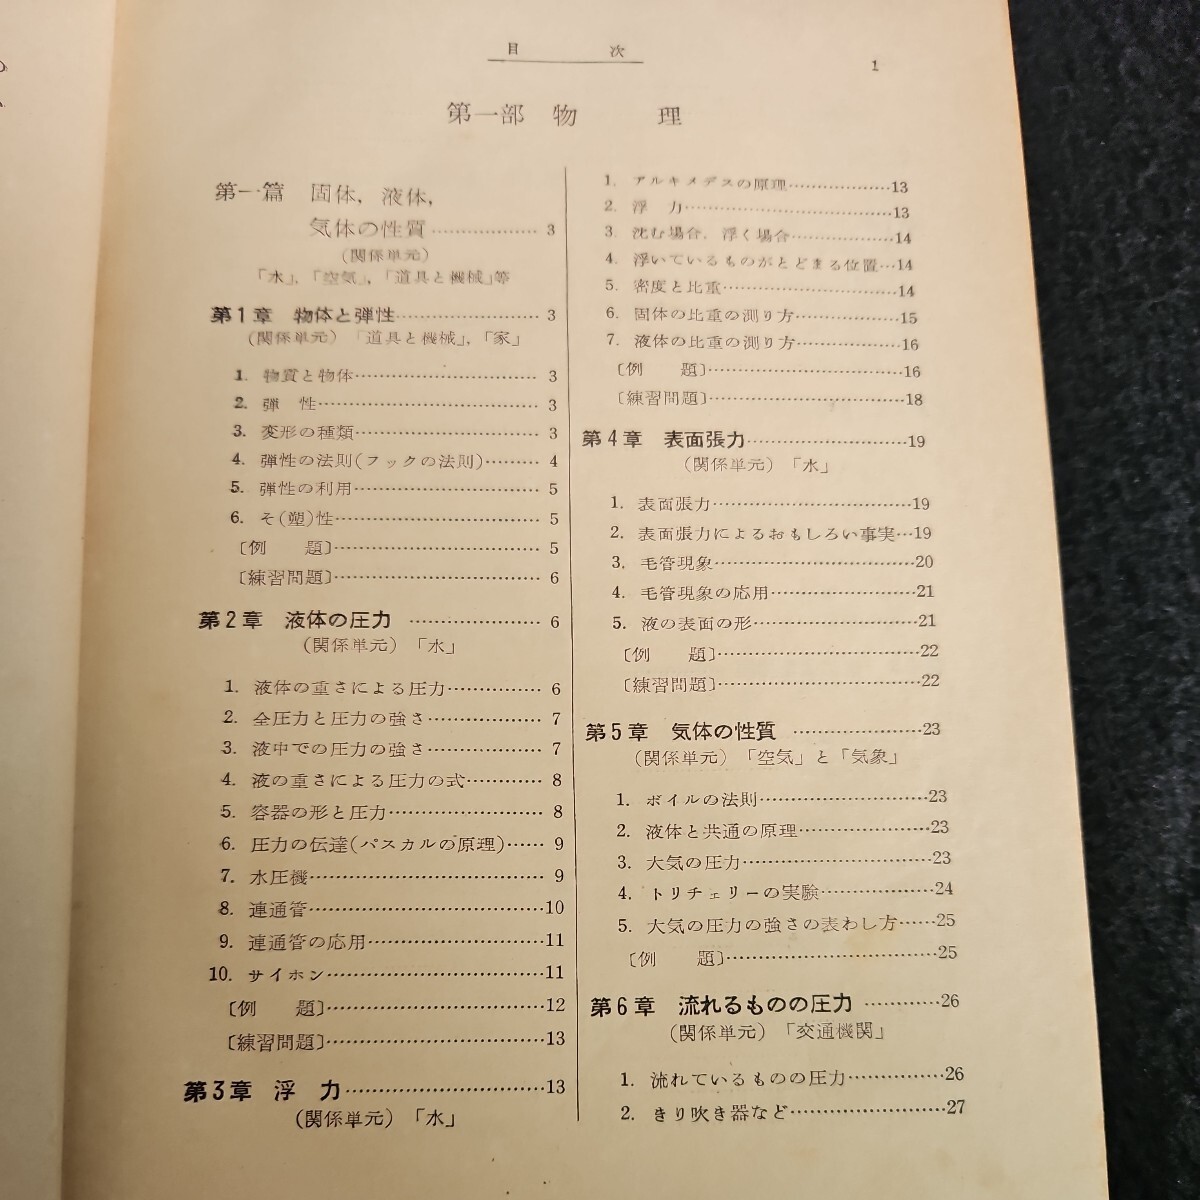 目　次
1
第一部 物　理
第一篇 固体，液体，
気体の性質………………3
（関係単元）
「水」，「空気」，「道具と機械」等
第1章 物体と弾性………………3
（関係単元）「道具と機械」，「家」
1. 物質と物体………………3
2. 弾　性………………3
3. 変形の種類………………3
4. 弾性の法則(フックの法則)………4
5. 弾性の利用………………5
6. そ(塑)性………………5
〔例　題〕………………5
〔練習問題〕………………6
第2章 液体の圧力………………6
（関係単元）「水」
1. 液体の重さによる圧力……………6
2. 全圧力と圧力の強さ………………7
3. 液中での圧力の強さ………………7
4. 液の重さによる圧力の式…………8
5. 容器の形と圧力………………8
6. 圧力の伝達(パスカルの原理)……9
7. 水圧機………………9
8. 連通管………………10
9. 連通管の応用………………11
10. サイホン………………11
〔例　題〕………………12
〔練習問題〕………………13
第3章 浮　力………………13
（関係単元）「水」
1. アルキメデスの原理………………13
2. 浮　力………………13
3. 沈む場合，浮く場合………………14
4. 浮いているものがとどまる位置…14
5. 密度と比重………………14
6. 固体の比重の測り方………………15
7. 液体の比重の測り方………………16
〔例　題〕………………16
〔練習問題〕………………18
第4章 表面張力………………19
（関係単元）「水」
1. 表面張力………………19
2. 表面張力によるおもしろい事実…19
3. 毛管現象………………20
4. 毛管現象の応用………………21
5. 液の表面の形………………21
〔例　題〕………………22
〔練習問題〕………………22
第5章 気体の性質………………23
（関係単元）「空気」と「気象」
1. ボイルの法則………………23
2. 液体と共通の原理………………23
3. 大気の圧力………………23
4. トリチェリーの実験………………24
5. 大気の圧力の強さの表わし方……25
〔例　題〕………………25
第6章 流れるものの圧力…………26
（関係単元）「交通機関」
1. 流れているものの圧力……………26
2. きり吹き器など………………27